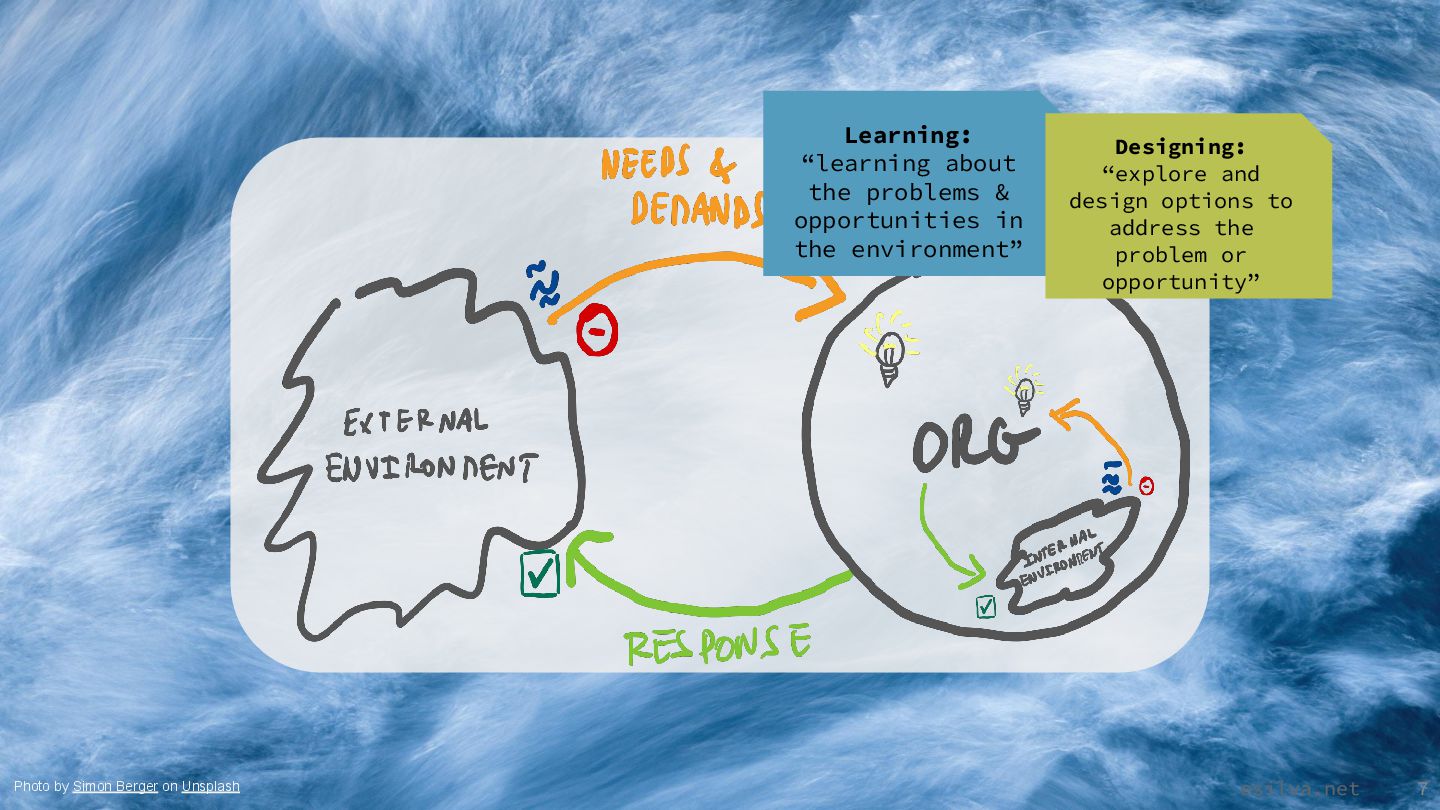 NEEDS &
DEMANDS
Learning:
“learning about
the problems &
opportunities in
the environment”
Designing:
“explore and
design options to
address the
problem or
opportunity”
EXTERNAL
ENVIRONMENT
ORG
INTERNAL
ENVIRONMENT
RESPONSE
Photo by Simon Berger on Unsplash
esilva.net
7